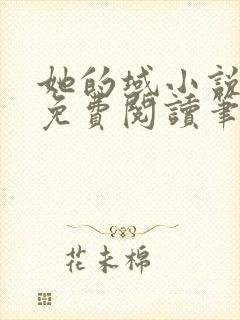 她的城小說
免費閱讀筆
花未棉